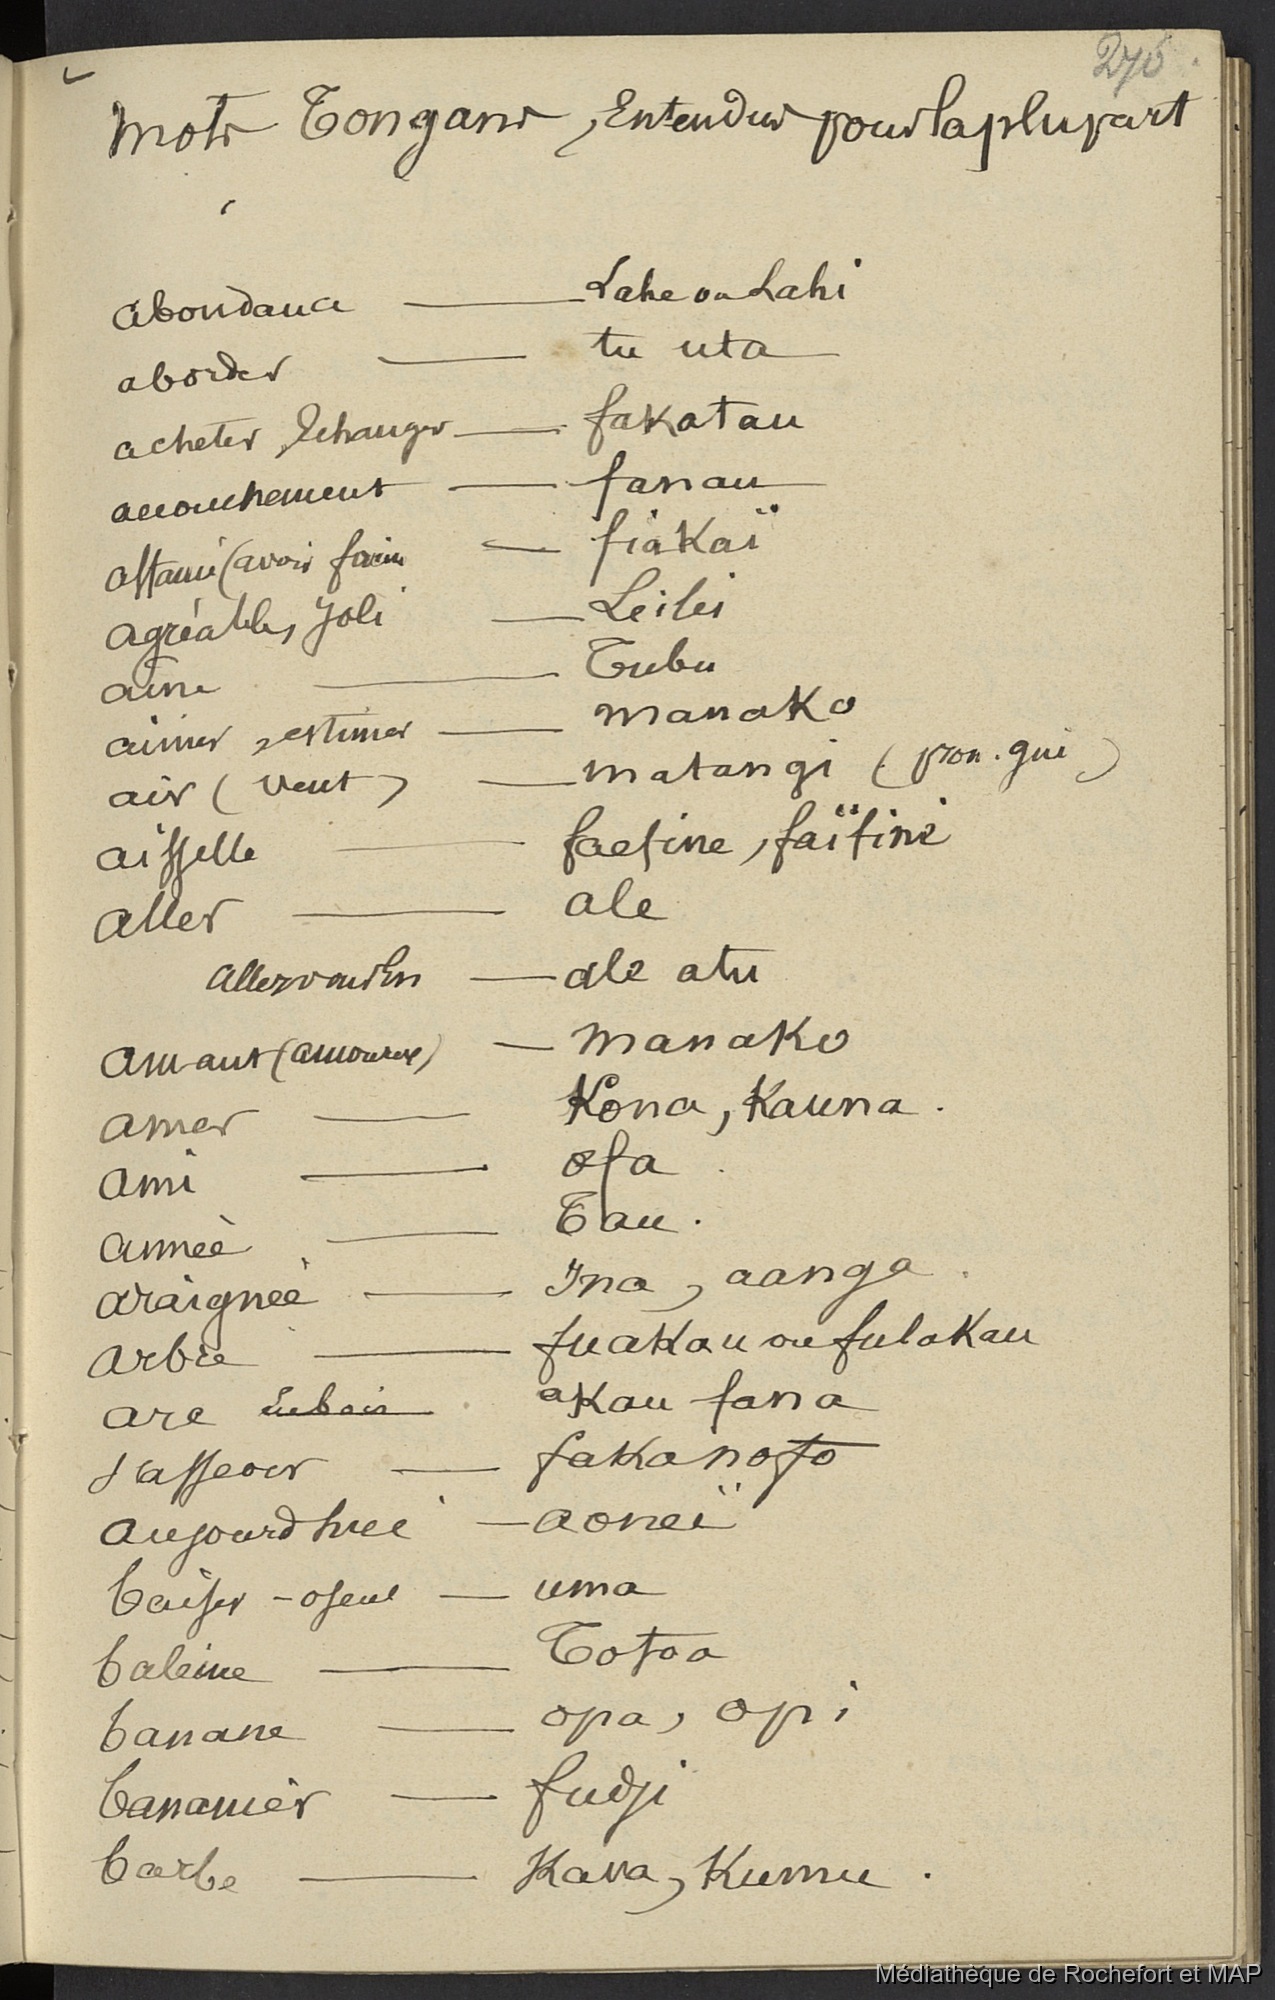 276.
Mots Tongans, Entendus pour la plupart
abondance — Lahe ou Lahi
aborder — tu uta
acheter, Echanger — fakatau
accouchement — fanau
affamé (avoir faim — fiàkaï
agréable, Joli — Leilei
aine — Tubu
aimer, estimer — manako
air (vent) — matangi (pron. gui)
aisselle — faefine, faïfine
aller — ale
allez vous en — ale atu
amant (amoureux) — manako
amer — Kona, Kauna.
ami — ofa
année — Tau.
araignée — Ina, aanga
arbre — fuakau ou fulakau
arc en bois akau fana
s'asseoir — fakanofo
aujourd'hui — aoneï
baiser — uma
baleine — Tofoa
banane — opa, opi
bananier — fudji
barbe — Kava, Kumu.
Médiathèque de Rochefort et MAP